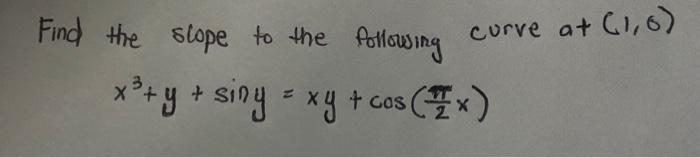 Find the slope to the following curve at (1,0)
x³+ y + siny = xy + cos(π/2 x)